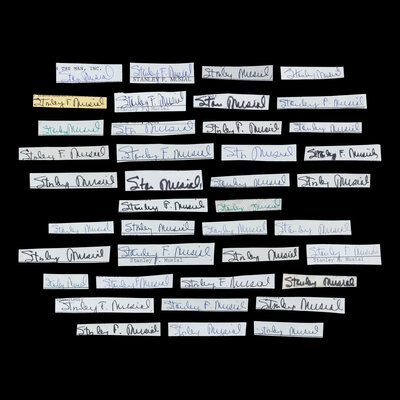 THE MAN, INC.
Stan Musial
Stanley F. Musial
STANLEY F. MUSIAL
Stanley Musial
Stanley Musial
Stanley F. Musial
Stanley F. Musial
Stan Musial
Stanley F. Musial
Stanley Musial
Stan Musial
Stanley F. Musial
Stanley Musial
Stanley F. Musial
Stanley F. Musial
Stan Musial
Stanley F. Musial
Stanley Musial
Stan Musial
Stanley Musial
Stanley Musial
Stanley F. Musial
Stanley Musial
Stanley Musial
Stanley Musial
Stanley Musial
Stanley Musial
Stanley Musial
Stanley F. Musial
Stanley F. Musial
Stanley Musial
Stanley F. Musial
Stanley F. Musial
Stanley Musial
Stanley F. Musial
Stanley F. Musial
Stanley Musial
Stanley F. Musial
Stanley Musial
Stanley Musial
Stanley F. Musial
Stanley Musial
Stanley Musial